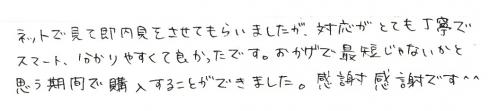 ネットで見て即内見をさせてもらいましたが、対応がとても丁寧で
スマート、分かりやすくて良かったです。おかげで最短じゃないかと
思う期間で購入することができました。感謝感謝です^^